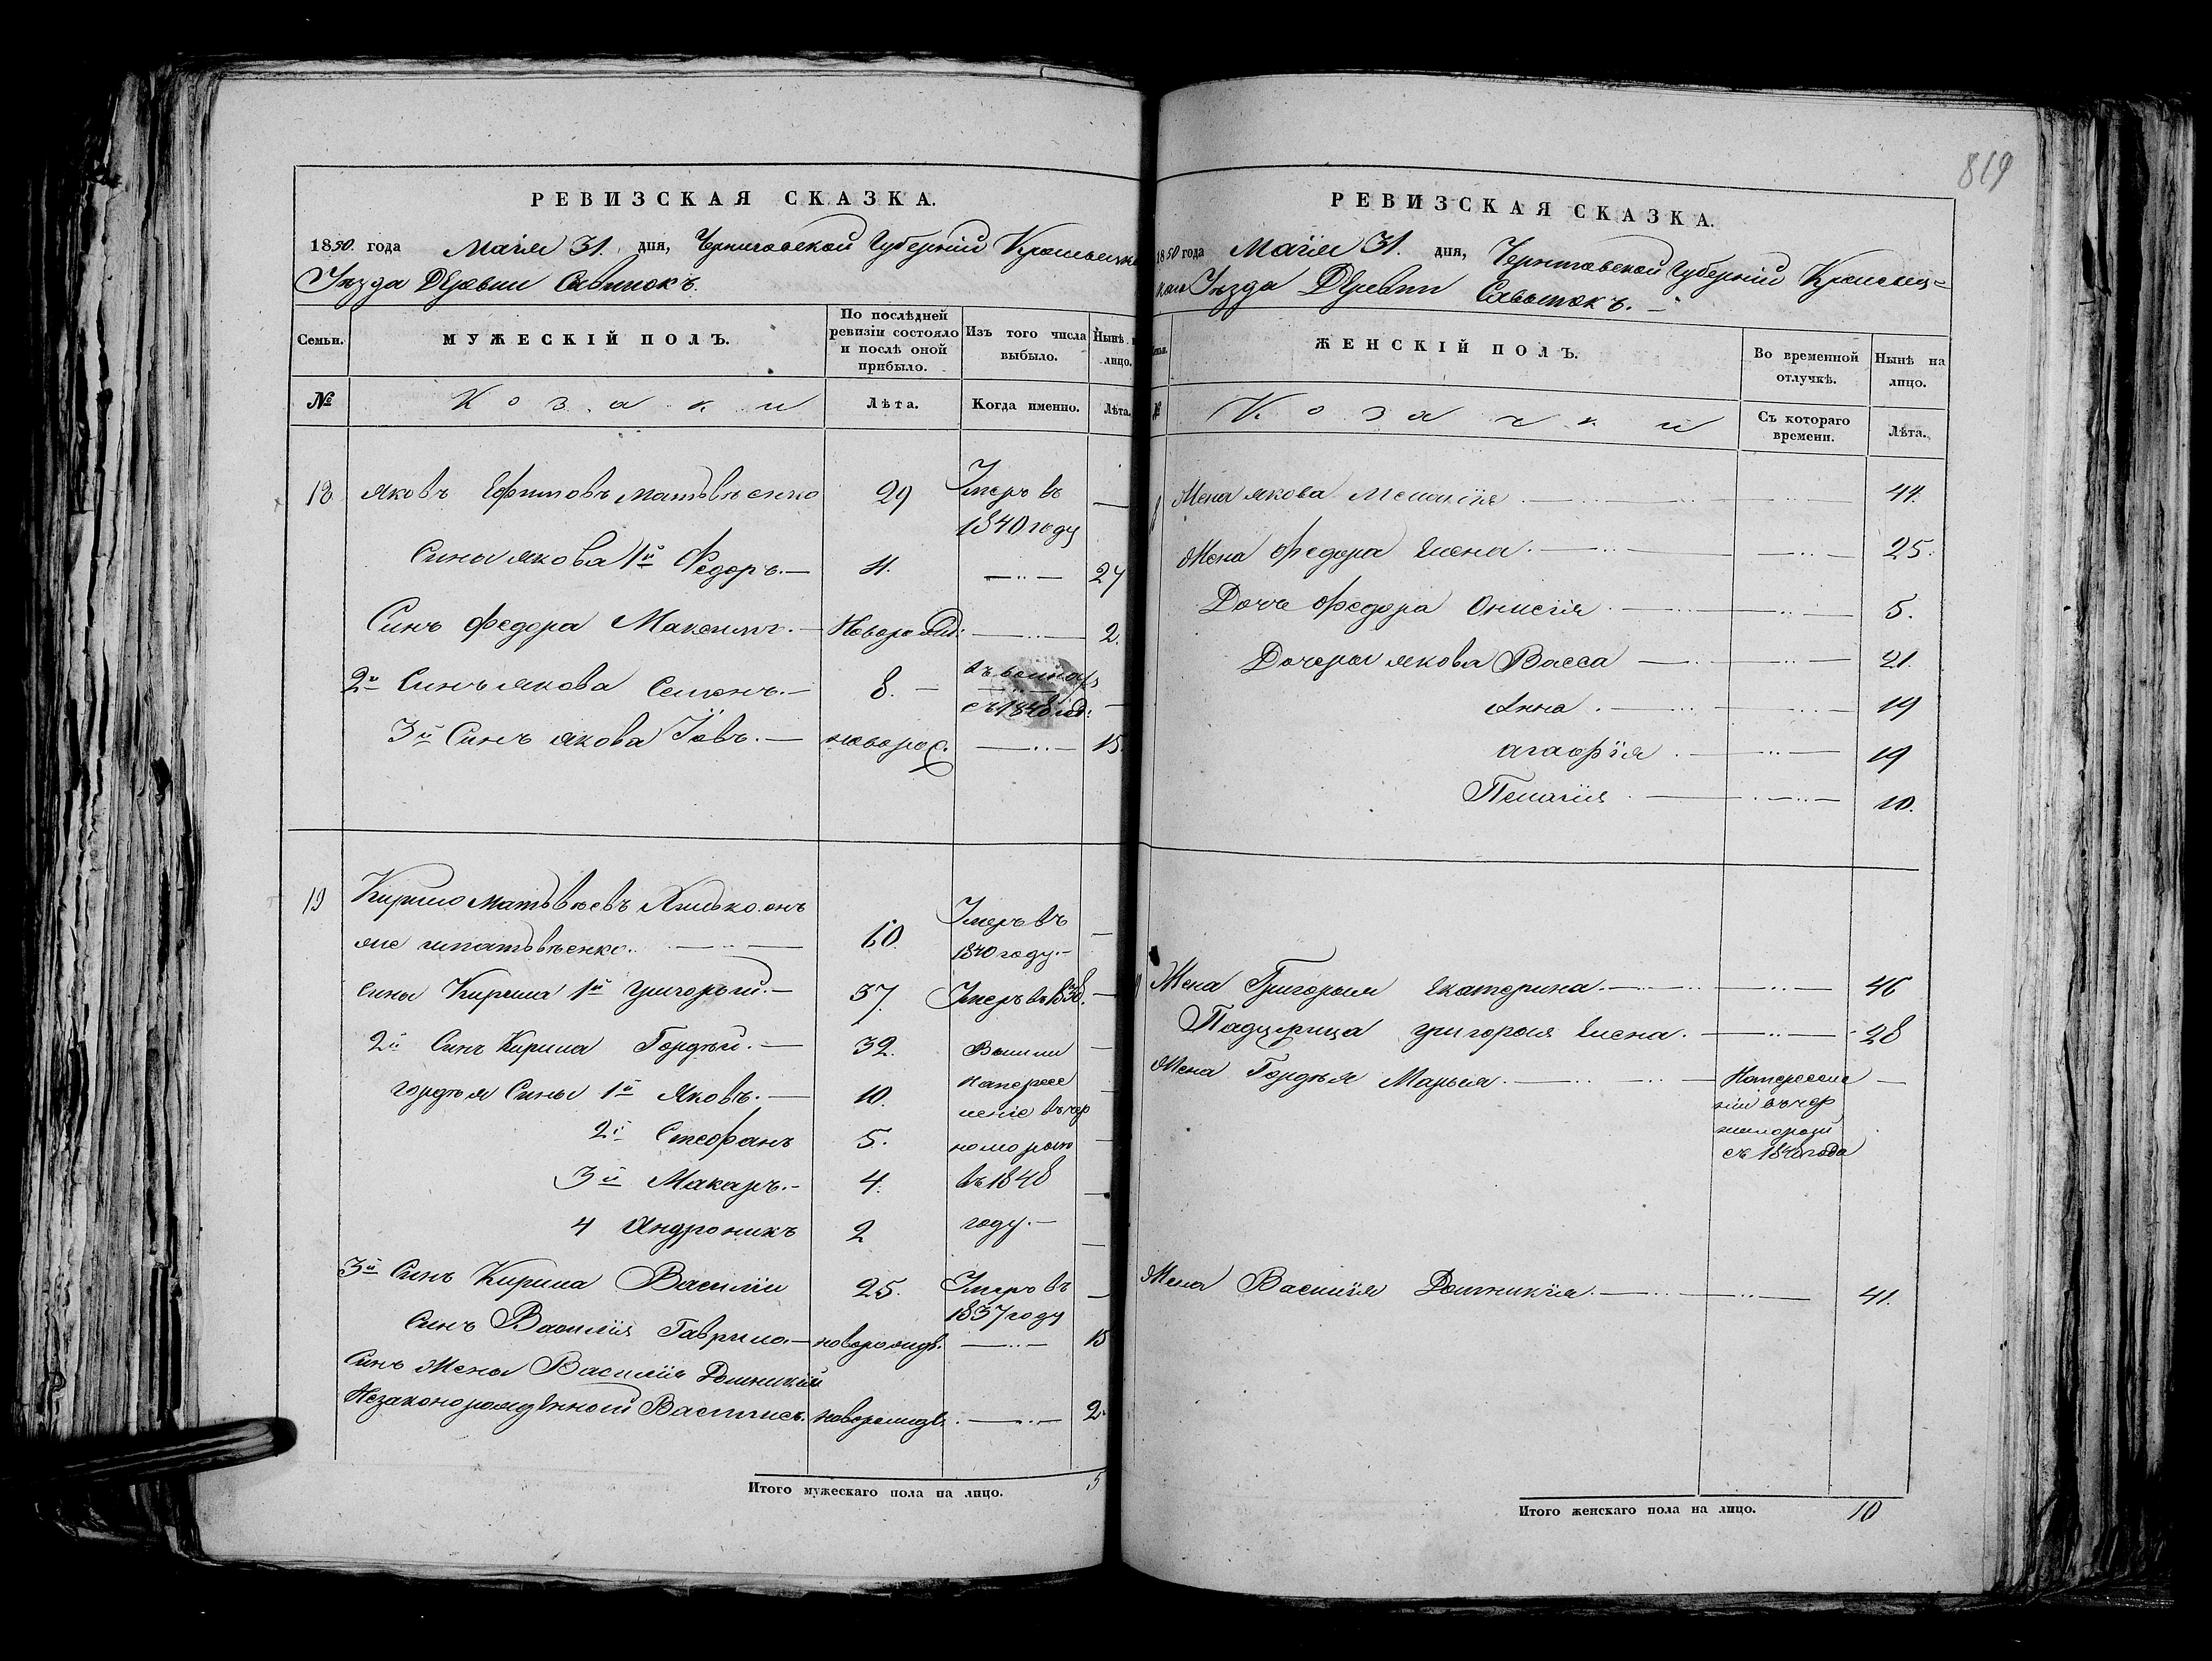 819
РЕВИЗСКАЯ СКАЗКА.
1850. года Маія 31. дня, Черниговской Губерніи Кролевецка
Уѣзда Деревни Савинокъ.
Семьи. МУЖЕСКІЙ ПОЛЪ. По послѣдней ревизіи состояло и послѣ оной прибыло. Изъ того числа выбыло. Нынѣ лицо.
№ Козаки Лѣта. Когда именно. Лѣта.
18 Яковъ Ефимовъ Матвѣенко 29 Умеръ въ —
1840 году
Сины Якова 1й Федоръ.— 11. —..— 27
Синъ Федора Максимъ.— Новорожд: —..— 2.
2й Синъ Якова Семенъ.— 8.—
съ 1848 год:
3й Синъ Якова Іовъ.— новорож. —..— 15.
19 Кирило Матвѣевъ онъ
же Матвѣенко. 60. Умеръ въ —
1840 году.—
Сины Кирила 1й Григорій.— 37. Умеръ въ 1838. —
2й Синъ Кирила Гордѣй.— 32. Вышли —
Гордѣя Сины 1й Яковъ.— 10. на пересе
леніе въ чер
2й Стефанъ 5. номорію
3й Макаръ.— 4. въ 1848 —
4 Андроникъ 2 году.— —
3й Синъ Кирила Василій 25. Умеръ въ —
1837 году
Синъ Василія Гаврило.— новорожд. —..— 15
Синъ Жены Василія Домникіи
Незаконорожденной Василій. новорожд. —..— 2.
Итого мужескаго пола на лицо. 5
РЕВИЗСКАЯ СКАЗКА.
1850 года Маія 31. дня, Черниговской Губерніи Кролевец=
кого Уѣзда Деревни Савинокъ.—
ЖЕНСКІЙ ПОЛЪ. Во временной отлучкѣ. Нынѣ на лицо.
№ Козачки Съ котораго времени. Лѣта.
Жена Якова 44.
Жена Федора Елена. 25.
Дочь Федора Онисія 5.
Дочери Якова Васса 21.
Анна 19
Агафія 19
Пелагія 10.
Жена Григорія Екатерина. 46
Падчерица Григорія Елена. 28
Жена Гордѣя Марья. На пересел
ніи въ чер
номоріи
съ 1848 года
Жена Василія Домникія. 41.
Итого женскаго пола на лицо. 10